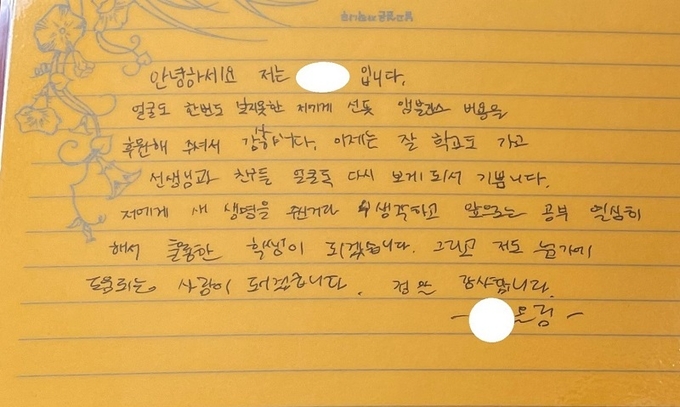 안녕하세요 저는 입니다.
얼굴도 한번도 보지못한 저에게 선뜻 앰뷸런스 비용을
후원해 주셔서 감사합니다. 이제는 잘 학교도 가고
선생님과 친구들 얼굴도 다시 보게 되서 기쁩니다.
저에게 새 생명을 주신거라 생각하고 앞으로는 공부 열심히
해서 훌륭한 학생이 되겠습니다. 그리고 저도 누군가에
도움되는 사람이 되겠습니다. 정말 감사합니다.
- 올림 -